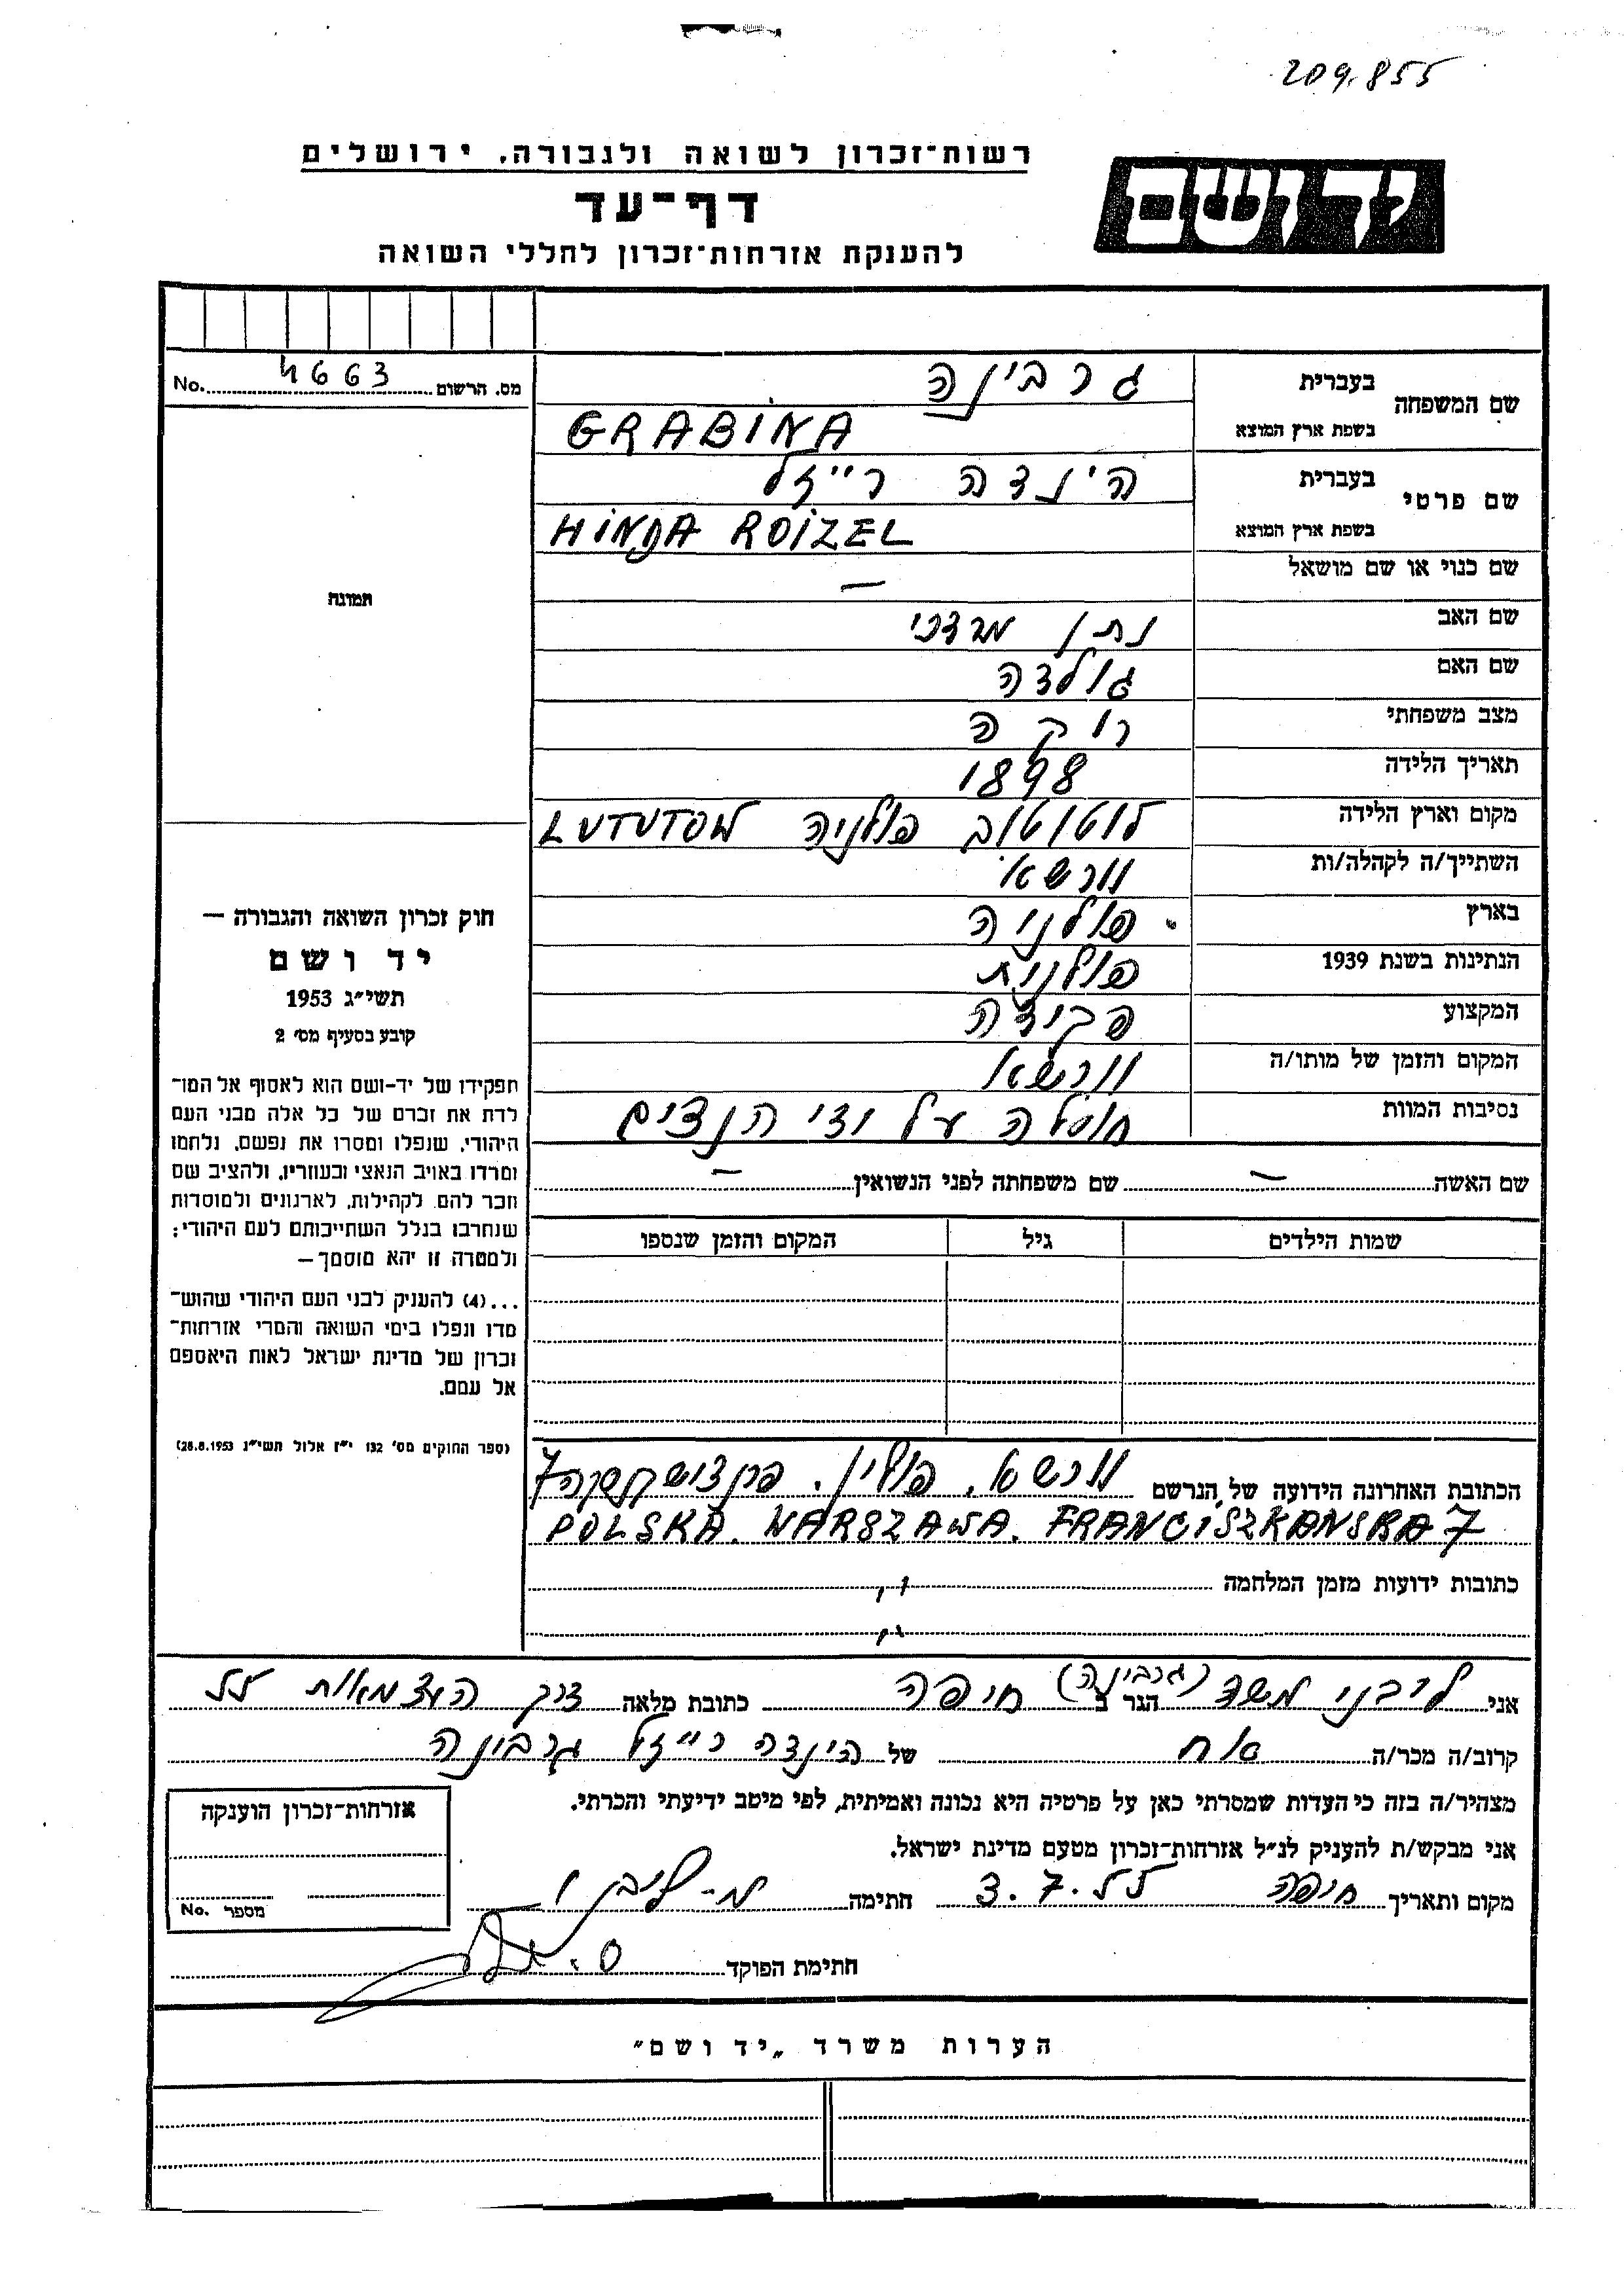 209.855
רשות־זכרון לשואה ולגבורה, ירושלים
יד ושם
דף־עד
להענקת אזרחות־זכרון לחללי השואה
מס. הרשום 4663 No.
שם המשפחה
בעברית גרבינה
בשפת ארץ המוצא GRABINA
שם פרטי
בעברית הינדה רייזל
בשפת ארץ המוצא HINDA ROIZEL
שם כנוי או שם מושאל —
שם האב נתן מרדכי
שם האם גולדה
מצב משפחתי רוקה
תאריך הלידה 1898
מקום וארץ הלידה לוטוטוב פולניה LUTUTOW
השתייך/ה לקהלה/ות וורשא
בארץ פולניה
הנתינות בשנת 1939 פולנית
המקצוע פקידה
המקום והזמן של מותו/ה וורשא
נסיבות המוות חוסלה על ידי הנצים
שם האשה — שם משפחתה לפני הנשואין —
שמות הילדים גיל המקום והזמן שנספו
תמונה
חוק זכרון השואה והגבורה —
יד ושם
תשי״ג 1953
קובע בסעיף מס׳ 2
תפקידו של יד-ושם הוא לאסוף אל המו־
לדת את זכרם של כל אלה מבני העם
היהודי, שנפלו ומסרו את נפשם, נלחמו
ומרדו באויב הנאצי ובעוזריו, ולהציב שם
וזכר להם, לקהילות, לארגונים ולמוסדות
שנחרבו בגלל השתייכותם לעם היהודי;
ולמטרה זו יהא מוסמך —
...(4) להעניק לבני העם היהודי שהוש־
מדו ונפלו בימי השואה והמרי אזרחות־
זכרון של מדינת ישראל לאות היאספם
אל עמם.
(ספר החוקים מס׳ 132 י״ז אלול תשי״ג 28.8.1953)
הכתובת האחרונה הידועה של הנרשם וורשא. פולין. פרנצישקנסקה 7
POLSKA. WARSZAWA. FRANCISZKANSKA 7
כתובות ידועות מזמן המלחמה "
"
אני ליבני משה (גרבינה) הגר ב חיפה כתובת מלאה דרך העצמאות 55
קרוב/ה מכר/ה אח של הינדה רייזל גרבינה
מצהיר/ה בזה כי העדות שמסרתי כאן על פרטיה היא נכונה ואמיתית, לפי מיטב ידיעתי והכרתי.
אני מבקש/ת להעניק לנ״ל אזרחות־זכרון מטעם מדינת ישראל.
מקום ותאריך חיפה 3.7.55 חתימה מ. ליבני
חתימת הפוקד
אזרחות־זכרון הוענקה
מספר No.
הערות משרד „יד ושם״